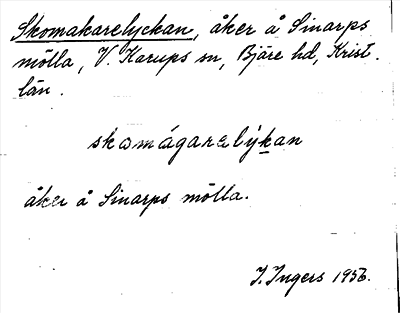 Skomakarelyckan, åker å Sinarps
mölla, V. Karups sn, Bjäre hd, Krist.
län.
skomágarelýkan
åker å Sinarps mölla.
I. Ingers 1956.